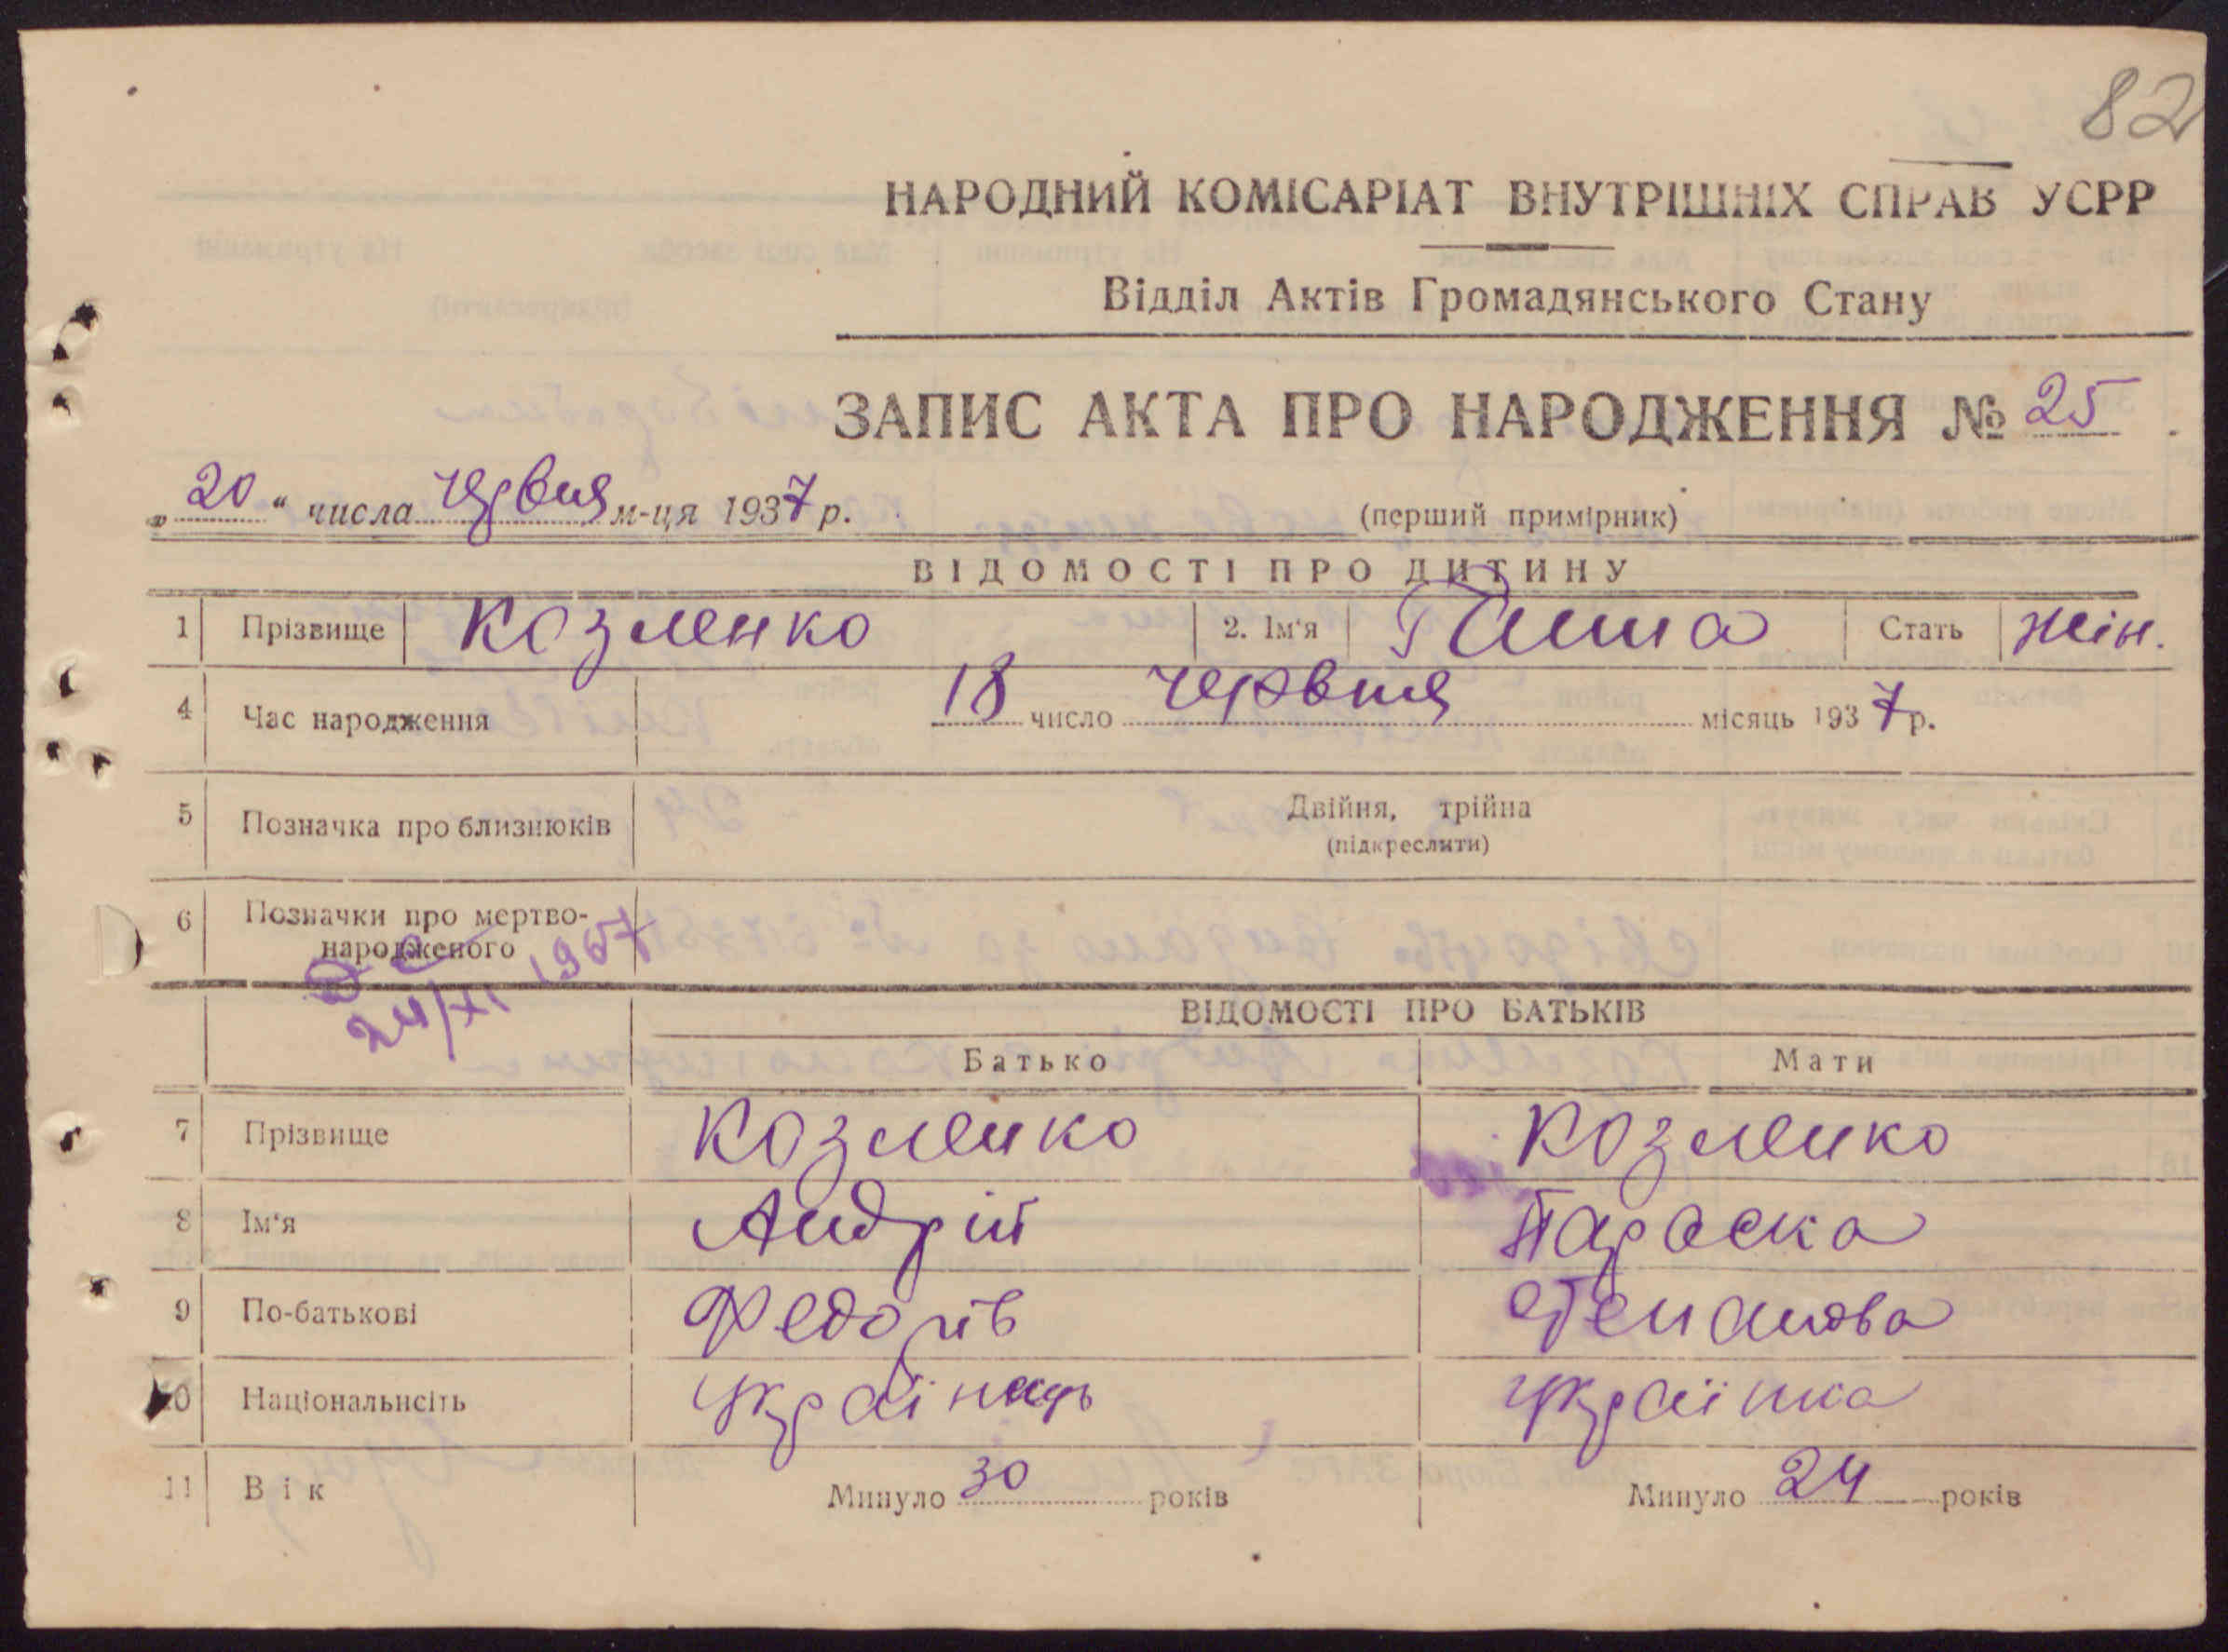 82
НАРОДНИЙ КОМІСАРІАТ ВНУТРІШНІХ СПРАВ УСРР
Відділ Актів Громадянського Стану
ЗАПИС АКТА ПРО НАРОДЖЕННЯ № 25
„ 20 “ числа червня м-ця 1937 р. (перший примірник)
ВІДОМОСТІ ПРО ДИТИНУ
1 Прізвище Козленко 2. Ім‘я Ганна Стать жін.
4 Час народження 18 число червня місяць 1937 р.
5 Позначка про близнюків Двійня, трійна
(підкреслити)
6 Позначки про мертво-
народженого
24/XI 1957
ВІДОМОСТІ ПРО БАТЬКІВ
Батько Мати
7 Прізвище Козленко Козленко
8 Ім‘я Андрій Параска
9 По-батькові Федорів Степанова
10 Національнсіть українець українка
11 Вік Минуло 30 років Минуло 24 років